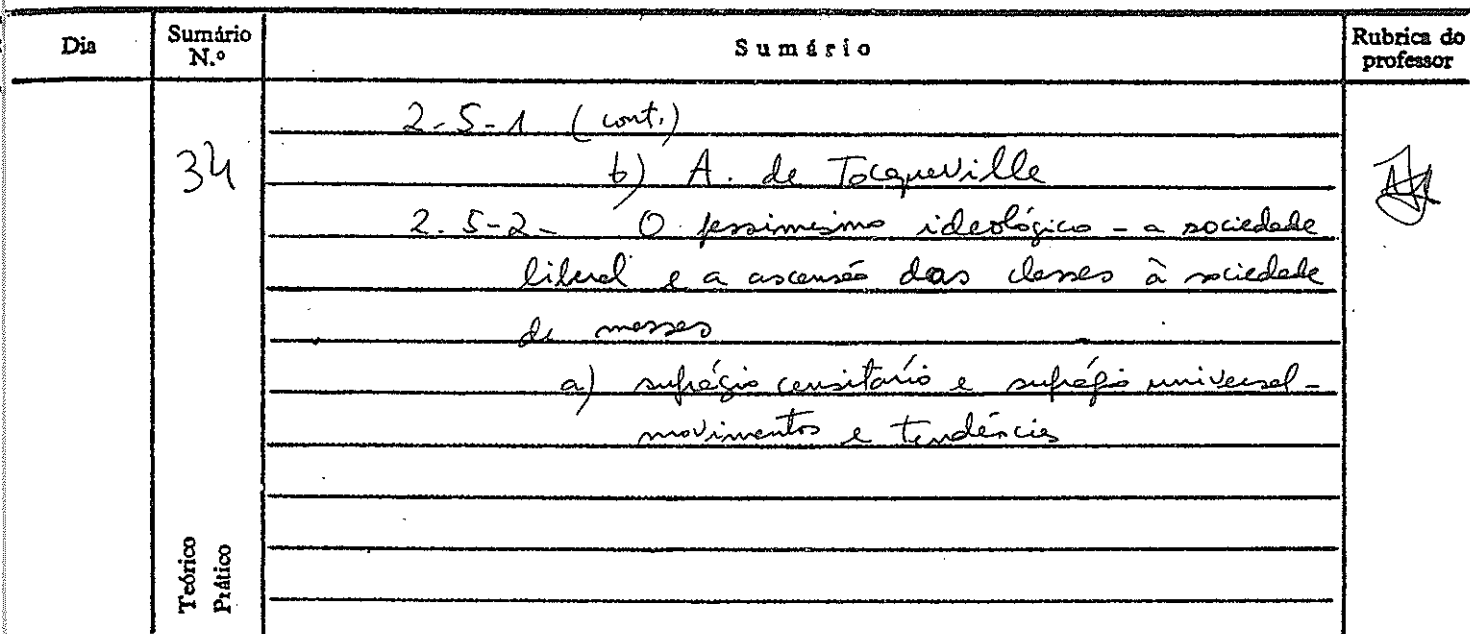 Dia
Sumário N.º
Sumário
Rubrica do professor
34
2-5-1 (cont.)
b) A. de Tocqueville
2.5-2- O pessimismo ideológico - a sociedade
liberal e a ascensão das classes à sociedade
de massas
a) sufrágio censitário e sufrágio universal -
movimentos e tendências
Teórico
Prático